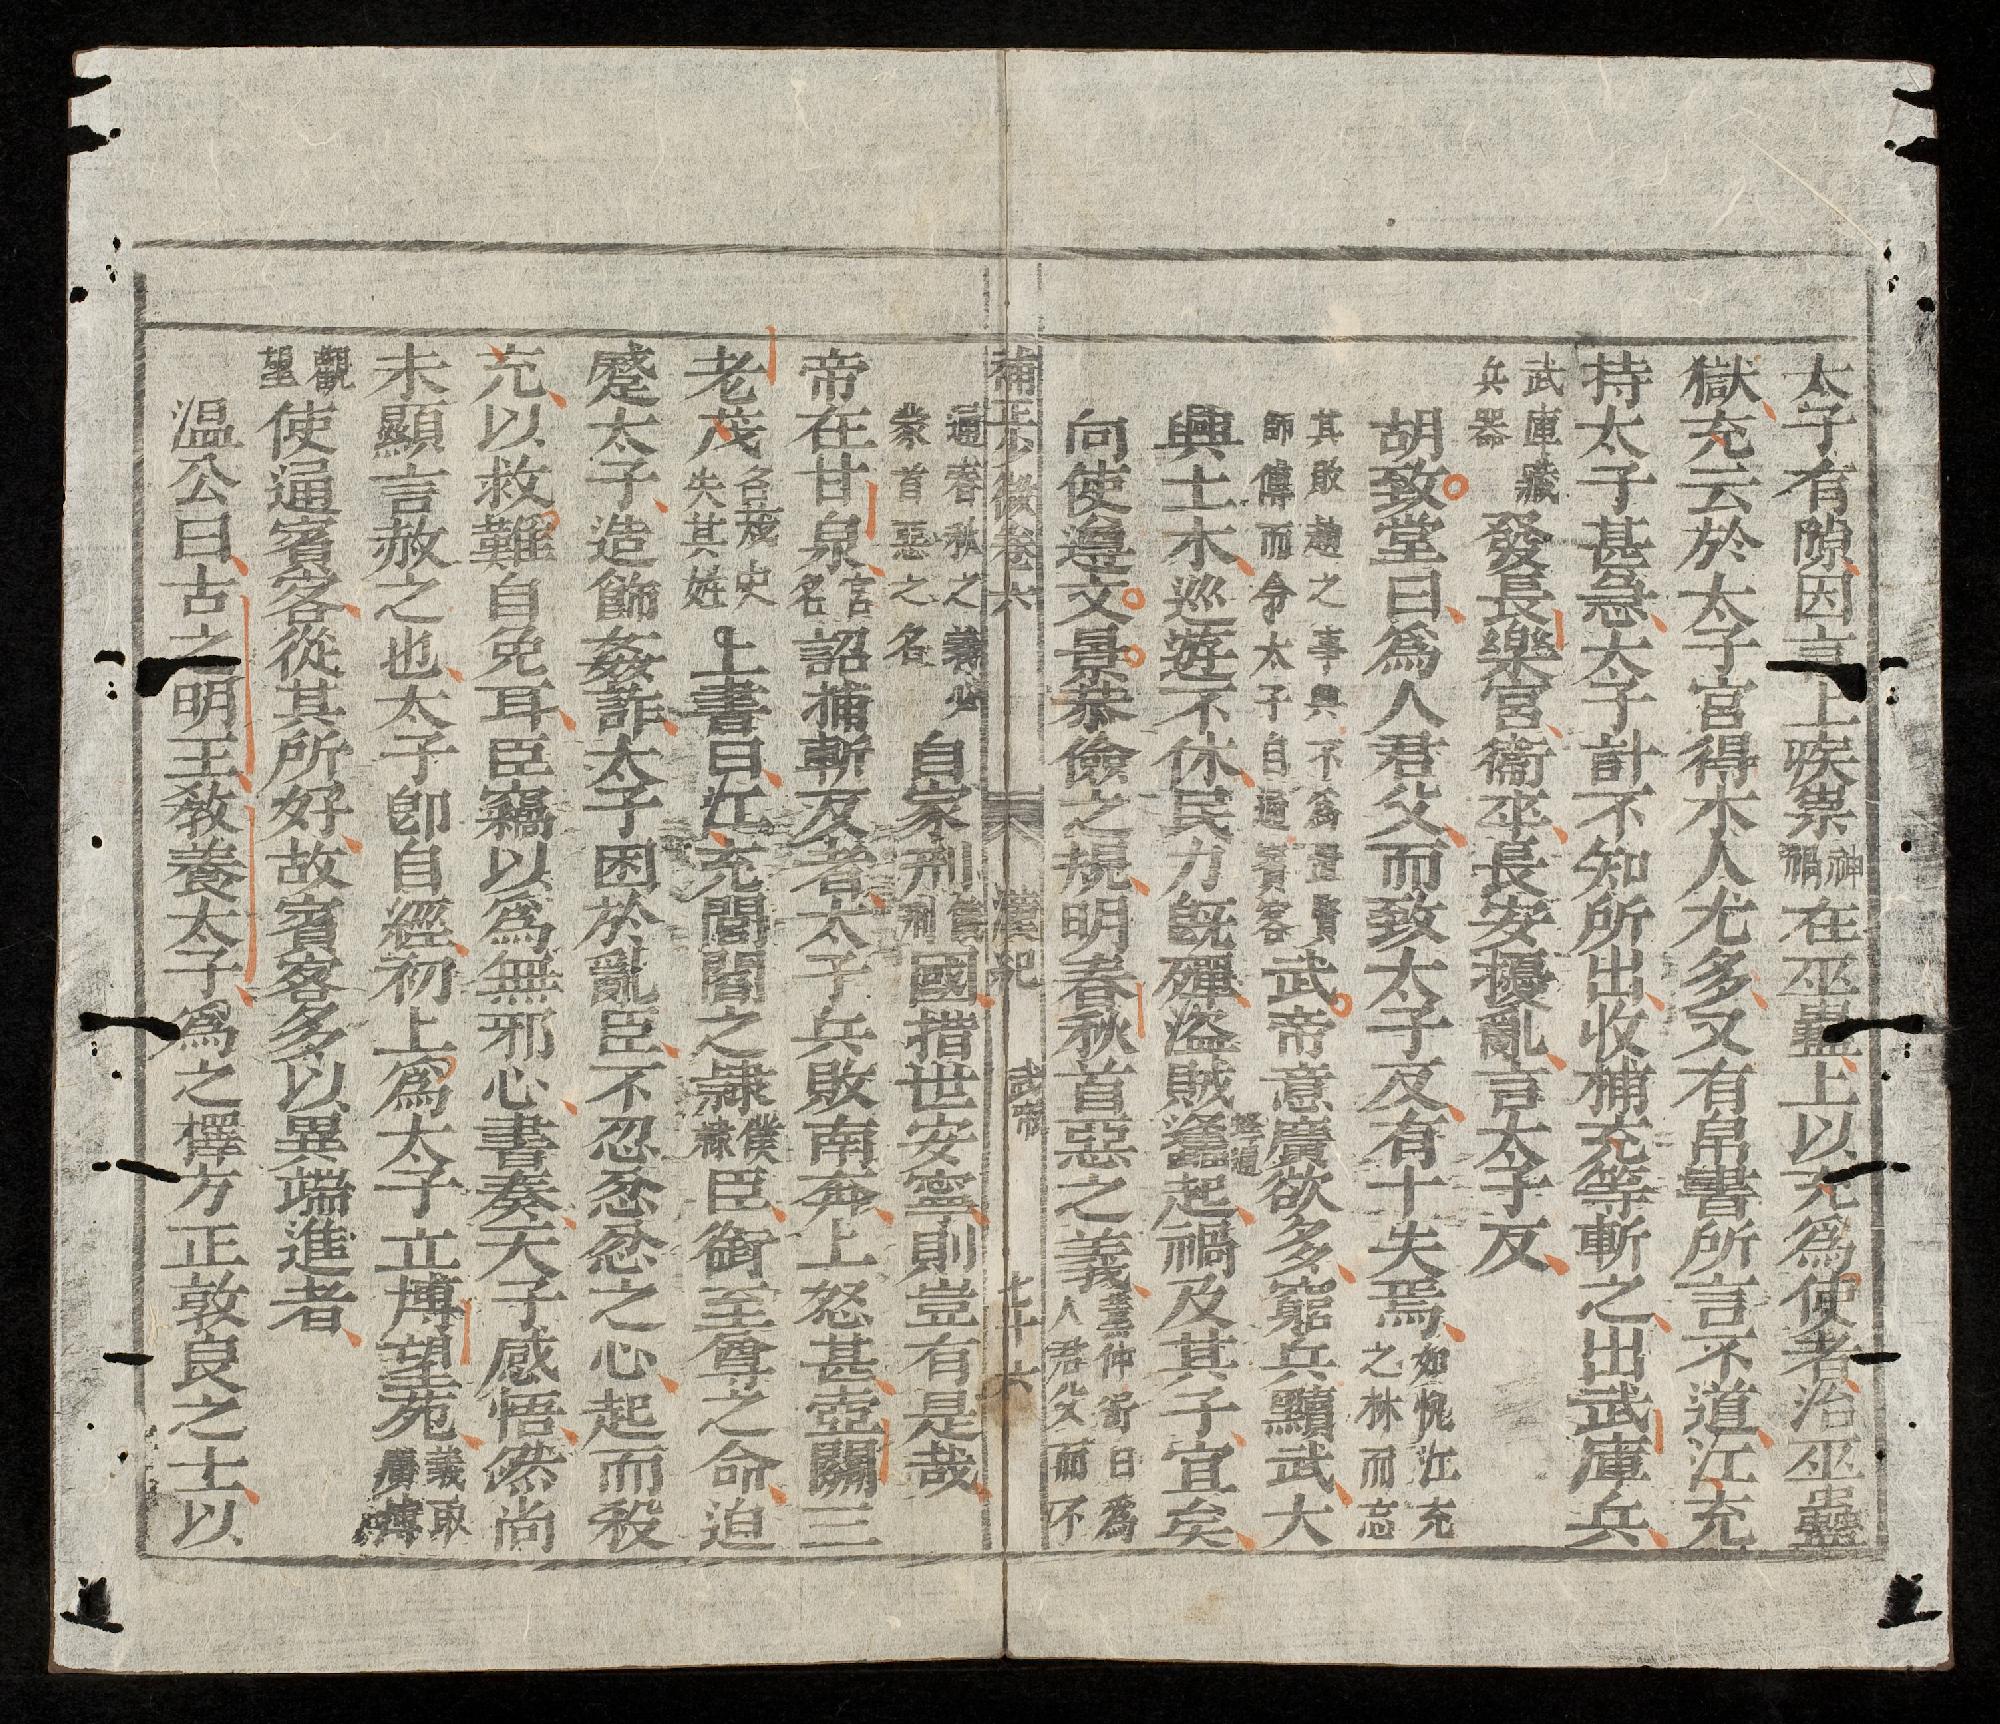 太子有隙因言上疾祟神禍在巫蠱上以充爲使者治巫蠱
獄充云於太子宮得木人尤多又有帛書所言不道江充
持太子甚急太子計不知所出收捕充等斬之出武庫兵
武庫藏兵器發長樂宮衞卒長安擾亂言太子反
胡致堂曰爲人君父而致太子反有十失焉如愧江充之林而忘
其敗趙之事與不爲置賢師傅而令太子自通賓客武帝意廣欲多窮兵黷武大
興土木巡遊不休民力旣殫盜賊蠭起禍及其子宜矣
向使遵文景恭儉之規明春秋首惡之義董仲舒曰爲人君父而不
補正少微卷六 漢紀 武帝 七十六
通春秋之義必蒙首惡之名自家刑國措世安寧則豈有是哉
帝在甘泉宮名詔捕斬反者太子兵敗南奔上怒甚壺關三
老茂名茂史失其姓上書曰江充閭閻之隷僕隷臣銜至尊之命迫
蹙太子造飾姦詐太子困於亂臣不忍忿忿之心起而殺
充以救難自免耳臣竊以爲無邪心書奏天子感悟然尚
未顯言赦之也太子卽自經初上爲太子立博望苑義取廣博
觀望使通賓客從其所好故賓客多以異端進者
溫公曰古之明王敎養太子爲之擇方正敦良之士以